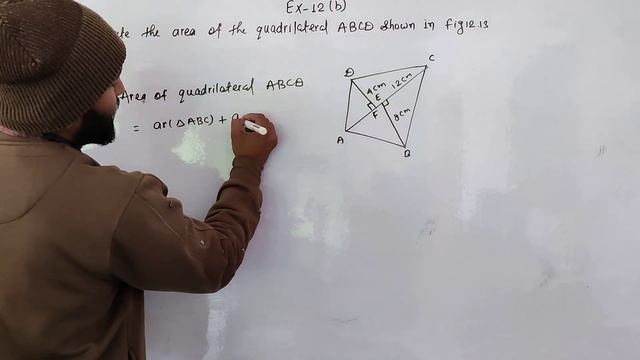 Ex-12(b)
the area of the quadrilateral ABCD shown in fig 12.13
Area of quadrilateral ABCD
= ar(△ABC) +
D
C
4cm
12cm
E
F
8cm
A
B